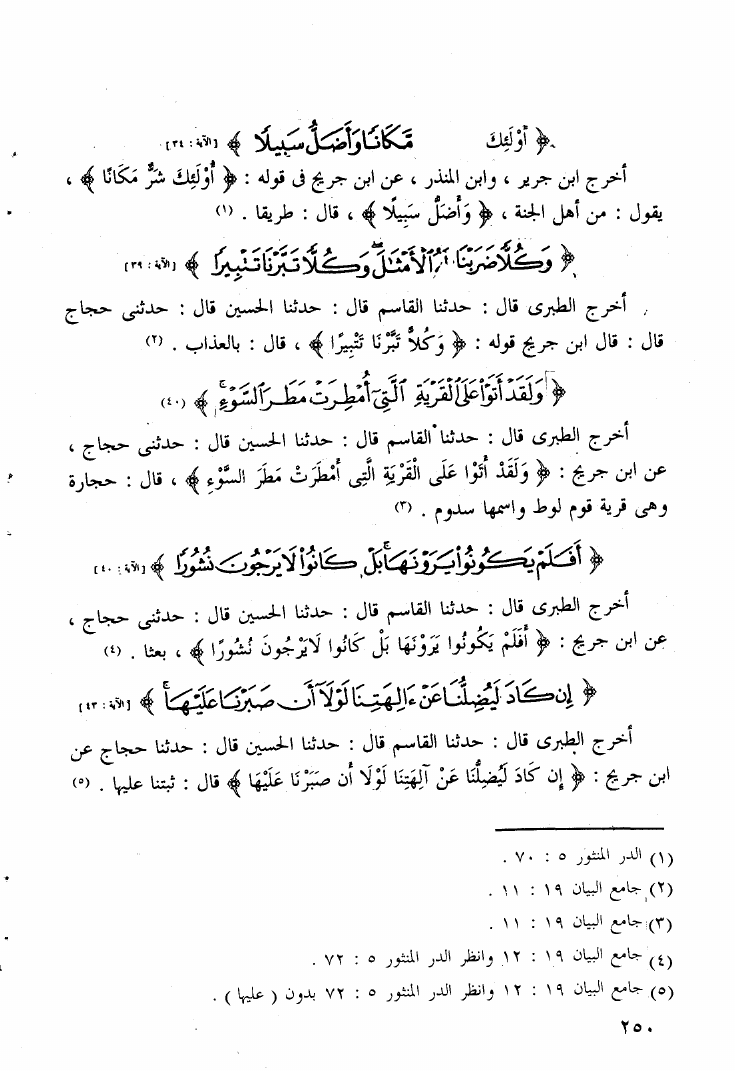 ﴿ أُوْلَئِكَ مَّكَانًا وَأَضَلُّ سَبِيلًا ﴾ [الآية : ٣٤]
أخرج ابن جرير ، وابن المنذر ، عن ابن جريج فى قوله : ﴿ أُوْلَئِكَ شَرٌّ مَكَانًا ﴾ ،
يقول : من أهل الجنة ، ﴿ وَأَضَلُّ سَبِيلًا ﴾ ، قال : طريقا . (١)
﴿ وَكُلًّا ضَرَبْنَا الْأَمْثَالَ وَكُلًّا تَبَّرْنَا تَتْبِيرًا ﴾ [الآية : ٣٩]
أخرج الطبرى قال : حدثنا القاسم قال : حدثنا الحسين قال : حدثنى حجاج
قال : قال ابن جريج قوله : ﴿ وَكُلاًّ تَبَّرْنَا تَتْبِيرًا ﴾ ، قال : بالعذاب . (٢)
﴿ وَلَقَدْ أَتَوْا عَلَى الْقَرْيَةِ الَّتِي أُمْطِرَتْ مَطَرَ السَّوْءِ ﴾ (٤٠)
أخرج الطبرى قال : حدثنا القاسم قال : حدثنا الحسين قال : حدثنى حجاج ،
عن ابن جريج : ﴿ وَلَقَدْ أَتَوْا عَلَى الْقَرْيَةِ الَّتِى أُمْطَرَتْ مَطَرَ السَّوْءِ ﴾ ، قال : حجارة
وهى قرية قوم لوط واسمها سدوم . (٣)
﴿ أَفَلَمْ يَكُونُوا يَرَوْنَهَا بَلْ كَانُوا لَا يَرْجُونَ نُشُورًا ﴾ [الآية : ٤٠]
أخرج الطبرى قال : حدثنا القاسم قال : حدثنا الحسين قال : حدثنى حجاج ،
عن ابن جريج : ﴿ أَفَلَمْ يَكُونُوا يَرَوْنَهَا بَلْ كَانُوا لَايَرْجُونَ نُشُورًا ﴾ ، بعثا . (٤)
﴿ إِن كَادَ لَيُضِلُّنَا عَنْ ءَالِهَتِنَا لَوْلَا أَن صَبَرْنَا عَلَيْهَا ﴾ [الآية : ٤٣]
أخرج الطبرى قال : حدثنا القاسم قال : حدثنا الحسين قال : حدثنا حجاج عن
ابن جريج : ﴿ إِن كَادَ لَيُضِلُّنَا عَنْ آلِهَتِنَا لَوْلَا أَن صَبَرْنَا عَلَيْهَا ﴾ قال : ثبتنا عليها . (٥)
(١) الدر المنثور ٥ : ٧٠ .
(٢) جامع البيان ١٩ : ١١ .
(٣) جامع البيان ١٩ : ١١ .
(٤) جامع البيان ١٩ : ١٢ وانظر الدر المنثور ٥ : ٧٢ .
(٥) جامع البيان ١٩ : ١٢ وانظر الدر المنثور ٥ : ٧٢ بدون ( عليها ) .
٢٥٠